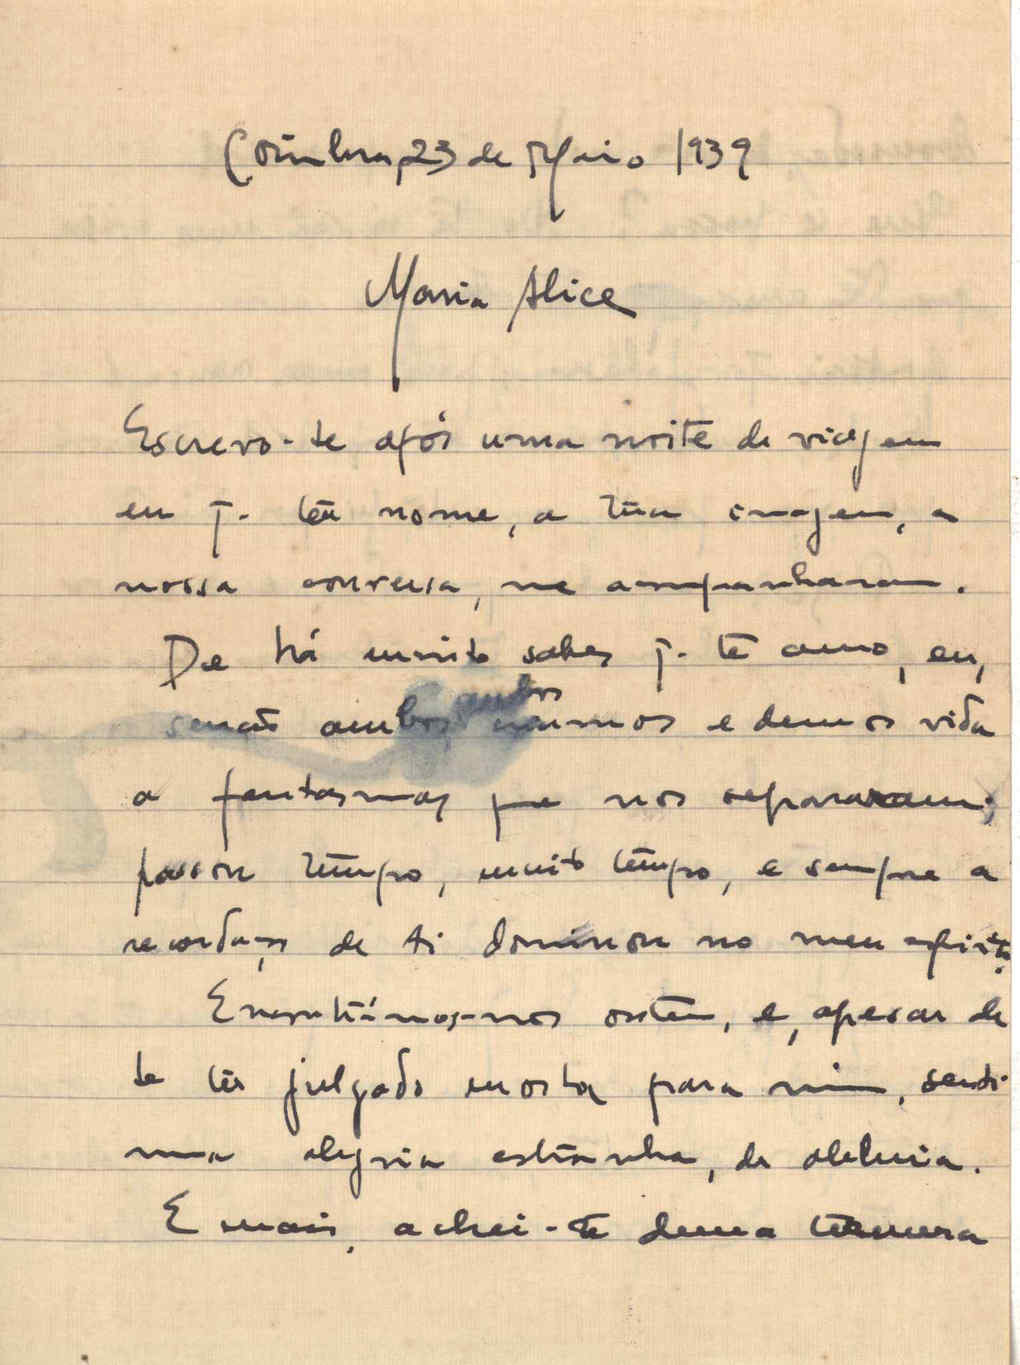 Coimbra, 23 de Maio 1939
Maria Alice
Escrevo-te após uma noite de viagem
em q. teu nome, a tua imagem, a
nossa conversa, me acompanharam.
De há muito sabes q. te amo, eu,
ambos
senão ambos e demos vida
a fantasmas que nos separaram;
passou tempo, muito tempo, e sempre a
recordação de ti dominou no meu espirito.
Encontrámo-nos ontem, e, apesar de
te ter julgado morta para mim, senti
uma alegria estranha, de aleluia.
E mais, achei-te duma ternura